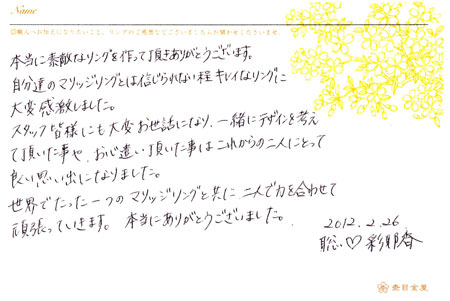 Name
本当に素敵なリングを作って頂きありがとうございます。
自分達のマリッジリングとは信じられない程キレイなリングに
大変感激しました。
スタッフ皆様にも大変お世話になり、一緒にデザインを考え
て頂いた事や、お心遣い頂いた事はこれからの二人にとって
良い思い出になりました。
世界でたった一つのマリッジリングと共に二人で力を合わせて
頑張っていきます。本当にありがとうございました。
2012.2.26
聡♡彩香
杢目金屋